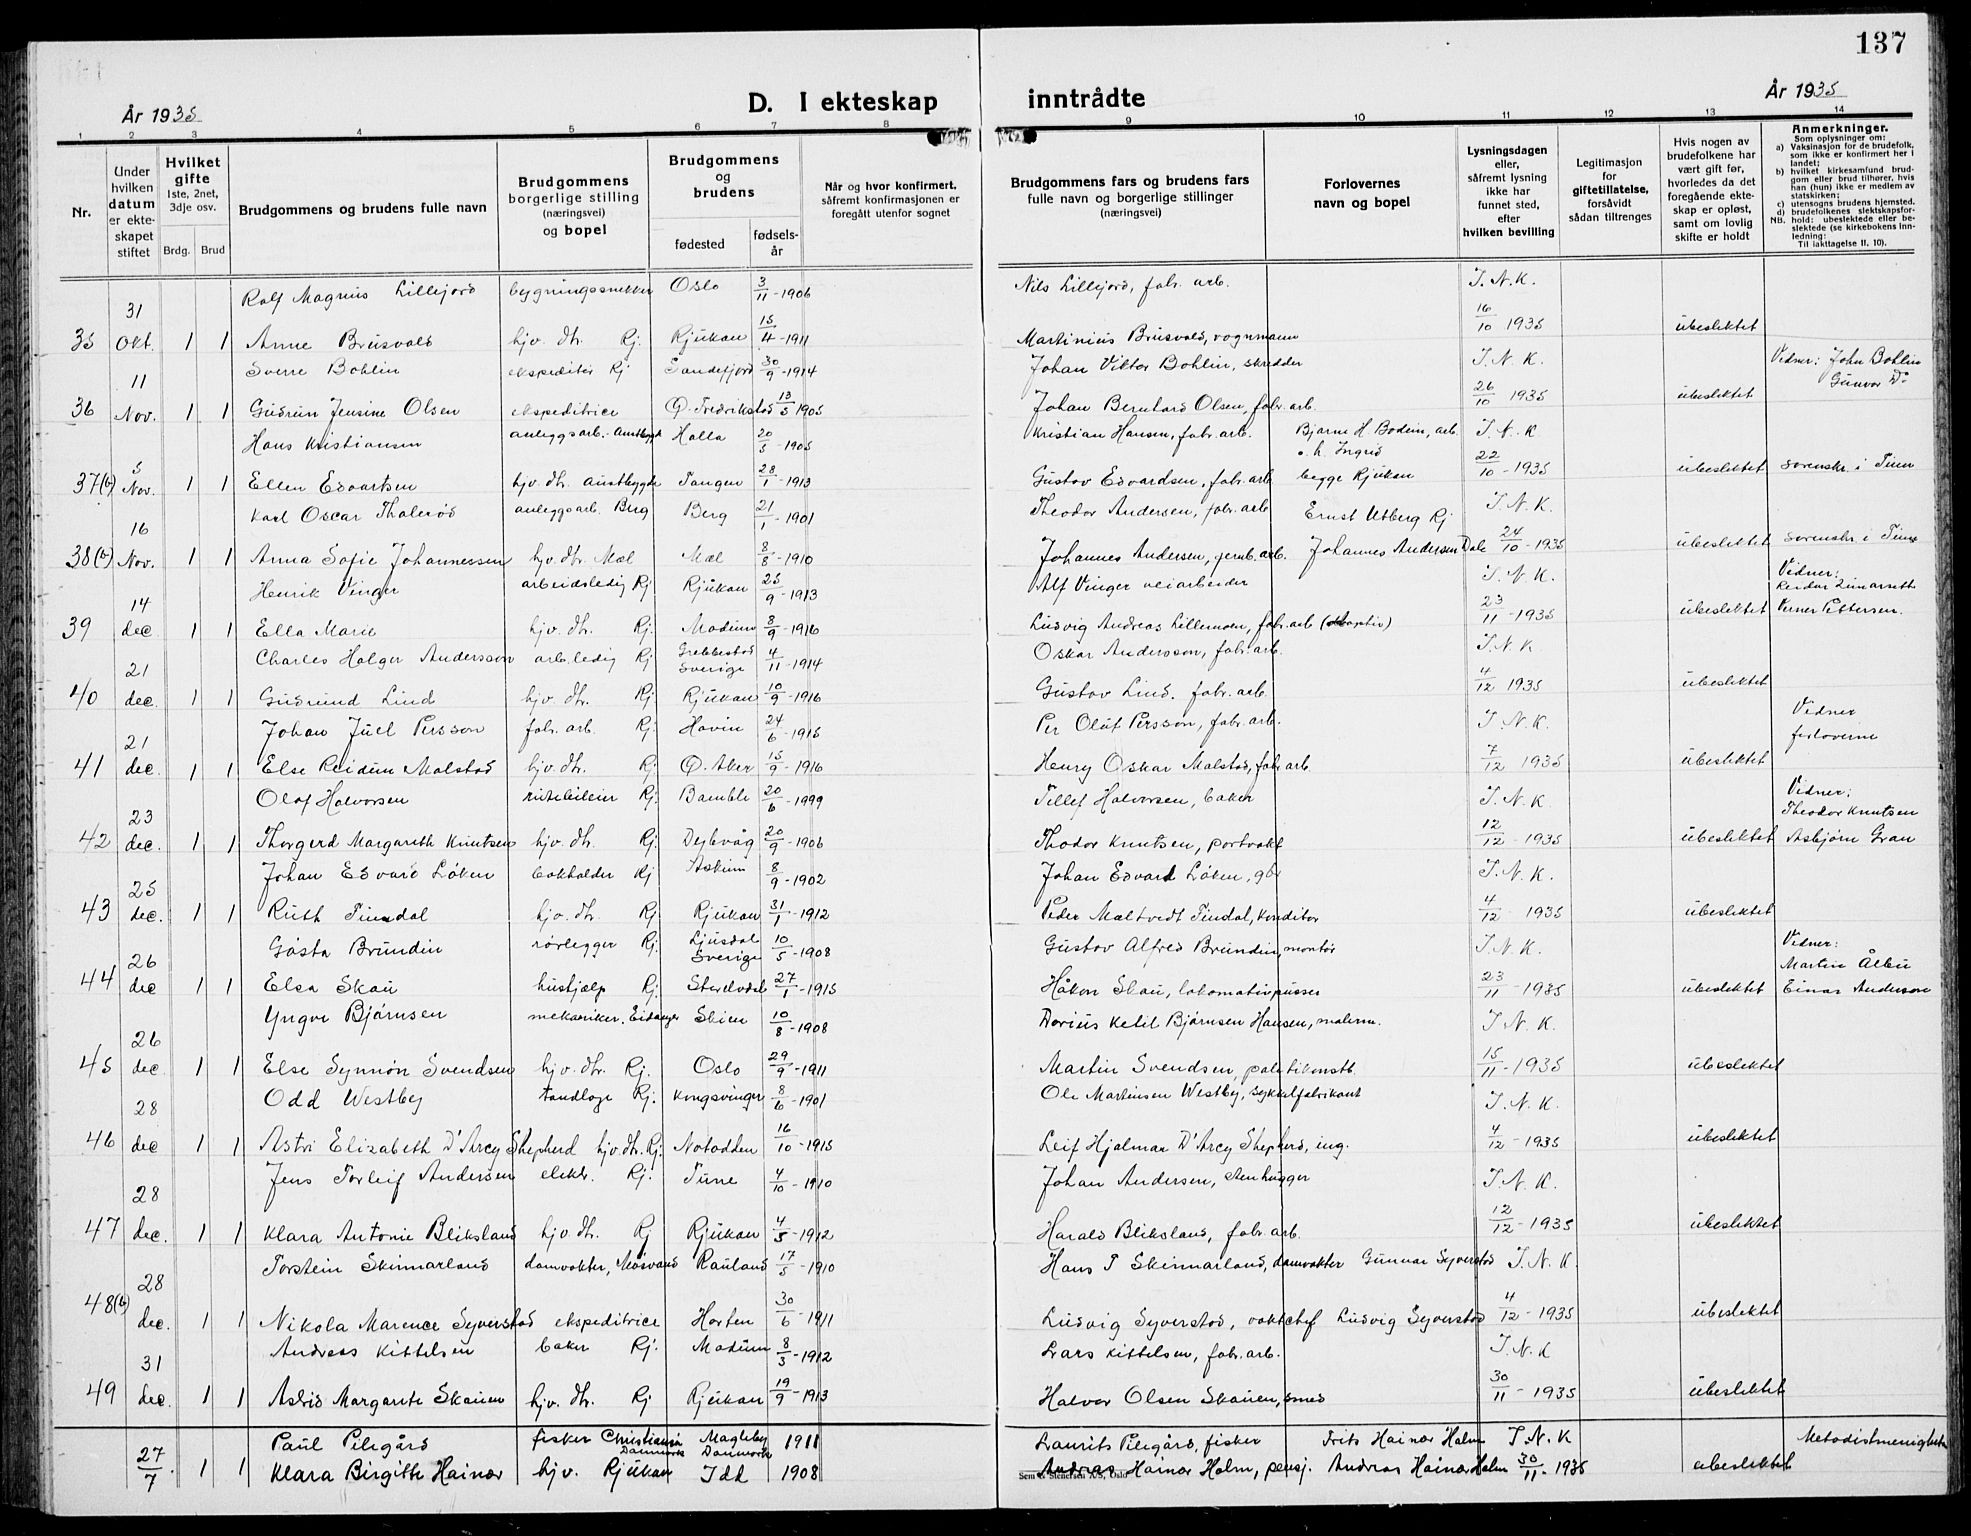 137
År 1935
D. I ekteskap inntrådte
År 1935
1 2 3 4 5 6 7 8 9 10 11 12 13 14
Nr.
Under hvilken datum er ekteskapet stiftet
Hvilket gifte 1ste, 2net, 3dje osv.
Brdg. Brud
Brudgommens og brudens fulle navn
Brudgommens borgerlige stilling (næringsvei) og bopel
Brudgommens og brudens
fødested
fødselsår
Når og hvor konfirmert, såfremt konfirmasjonen er foregått utenfor sognet
Brudgommens fars og brudens fars fulle navn og borgerlige stillinger (næringsvei)
Forlovernes navn og bopel
Lysningsdagen eller, såfremt lysning ikke har funnet sted, efter hvilken bevilling
Legitimasjon for giftetillatelse, forsåvidt sådan tiltrenges
Hvis nogen av brudefolkene har vært gift før, hvorledes da det foregående ekteskap er opløst, samt om lovlig skifte er holdt
Anmerkninger.
Som oplysninger om:
a) Vaksinasjon for de brudefolk, som ikke er konfirmert her i landet;
b) hvilket kirkesamfund brudgom eller brud tilhører, hvis han (hun) ikke er medlem av statskirken;
c) utensogns brudens hjemsted.
d) brudefolkenes slektskapsforhold: ubeslektede eller beslektede (se kirkebokens innledning:
NB. Til iakttagelse II, 10).
31 Rolf Magnus Lillejord bygningssnekker Oslo 3/11-1906 Nils Lillejord, fabr. arb. I.N.K.
35 Okt. 1 1 Anne Brusvold hjv. dtr. Rj. Rjukan 15/4-1911 Martinius Brusvold, vognmann 16/10 1935 ubeslektet
11 Sverre Bohlin ekspeditør Rj Sandefjord 30/9-1914 Johan Viktor Bohlin, skredder I.N.K. Vidner: John Bohlin
36 Nov. 1 1 Gudrun Jensine Olsen ekspeditrice Ø. Fredrikstad 13/5 1905 Johan Bernhard Olsen, fabr. arb. 26/10 1935 ubeslektet Gunvor Do
5 Hans Kristiansen anleggsarb. Austbygde Holla 20/5-1905 Kristian Hansen, fabr. arb. Bjarne H. Bodein, arb. I.N.K
o. h. Ingrid
37(b) Nov. 1 1 Ellen Edvartsen hjv. dtr. Austbygde Tangen 28/1-1913 Gustav Edvardsen, fabr. arb. begge Rjukan 22/10-1935 ubeslektet sorenskr. i Tinn
16 Karl Oscar Thalerød anleggsarb. Berg Berg 21/1-1901 Theodor Andersen, fabr. arb Ernst Utberg Rj I.N.K.
38(b) Nov. 1 1 Anna Sofie Johannessen hjv. dtr. Mæl Mæl 8/8-1910 Johannes Andersen, jernb. arb. Johannes Andersen Dale 24/10-1935 ubeslektet sorenskr. i Tinn
14 Henrik Vinger arbeidsledig Rj Rjukan 25/9-1913 Alf Vinger veiarbeider I.N.K. Vidner:
39 dec 1 1 Ella Marie hjv. dtr. Rj. Modum 8/9-1916 Ludvig Andreas Lillemoen, fabr. arb (adoptiv) 23/11-1935 ubeslektet Verner Pettersen.
21 Charles Holger Andersson arb. ledig Rj Grebbestad Sverige 4/11-1914 Oskar Andersson, fabr. arb. I.N.K.
40 dec. 1 1 Gudrund Lind hjv. dtr. Rj. Rjukan 10/9-1916 Gustav Lind. fabr. arb. 4/12 1935 ubeslektet
21 Johan Juel Persson fabr. arb. Rj. Hovin 24/6-1915 Per Oluf Persson, fabr. arb. I.N.K. Vidner
forloverne
41 dec. 1 1 Else Reidun Malstad hjv. dtr. Rj Ø. Aker 15/9-1916 Henry Oskar Malstad, fabr. arb. 7/12 1935 ubeslektet
23 Olaf Halvorsen rutebileier Rj. Bamble 20/6-1999 Tellef Halvorsen, baker I.N.K. Vidner:
Theodor Knutsen
42 dec. 1 1 Thorgerd Margareth Knutsen hjv. dtr. Rj. Dypvåg 20/9-1906 Thodor Knutsen, portvakt 12/12-1935 ubeslektet Asbjørn Gran
25 Johan Edvard Løken bokholder Rj Askim 8/9-1902 Johan Edvard Løken, gbr I.N.K.
43 dec. 1 1 Ruth Tindal hjv. dtr. Rj Rjukan 31/1-1912 Peder Mæltvedt Tindal, konditor 4/12-1935 ubeslektet
26 Gösta Brundin rørlegger Rj. Ljusdal Sverige 10/5-1908 Gustav Alfred Brundin, montør I.N.K. Vidner:
Martin Ålbu
44 dec 1 1 Elsa Skau hushjælp Rj. Storelvdal 27/1-1915 Håkon Skau, lokomotivpusser 23/11-1935 ubeslektet Einar Anderson
26 Yngve Bjørnsen mekaniker. Eidanger Skien 10/8-1908 Dorius Ketil Bjørnsen Hansen, malerm. I.N.K.
45 dec. 1 1 Else Synnøn Svendsen hjv. dtr. Rj. Oslo 29/9-1911 Martin Svendsen, politikonstb. 15/11-1935 ubeslektet
28 Odd Westby tandlæge Rj. Kongsvinger 8/6-1901 Ole Martinsen Westby, sykkelfabrikant I.N.K.
46 dec 1 1 Astri Elizabeth D'Arcy Shepherd hjv. dtr. Rj. Notodden 16/10-1915 Leif Hjalmar D'Arcy Shepherd, ing. 4/12-1935 ubeslektet
28 Jens Torleif Andersen elektr. Rj. Tune 4/10-1910 Johan Andersen, stenhugger I.N.K.
47 dec. 1 1 Klara Antonie Bliksland hjv. dtr. Rj Rjukan 4/5-1912 Harald Bliksland, fabr. arb. 12/12-1935 ubeslektet
28 Torstein Skinnarland damvokter, Møsvand Rauland 17/5-1910 Hans T Skinnarland, damvokter Gunnar Syverstad I.N.K
48(b) dec. 1 1 Nikola Marence Syverstad ekspeditrice Horten 30/6-1911 Ludvig Syverstad, vaktchef Ludvig Syverstad 4/12-1935 ubeslektet
31 Andreas Kittelsen baker Rj. Modum 8/3-1912 Lars Kittelsen, fabr. arb. I.N.K
49 dec. 1 1 Astrid Margarete Skauen hjv. dtr. Rj Rjukan 19/9-1913 Halvor Olsen Skauen, smed 30/11-1935 ubeslektet
27/7. Paul Pilegård fisker Christiansø Danmark Magleby Danmark 1911 Laurits Pilegård, fisker Frits Hainar Holm I.N.K Metodistmenigheten
1 1 Klara Birgitte Hainar hjv. Rjukan Idd 1908 Andreas Hainar Holm, pensj. Andreas Hainar Holm 30/11-1935 ubeslektet
Sem & Stenersen A/S, Oslo